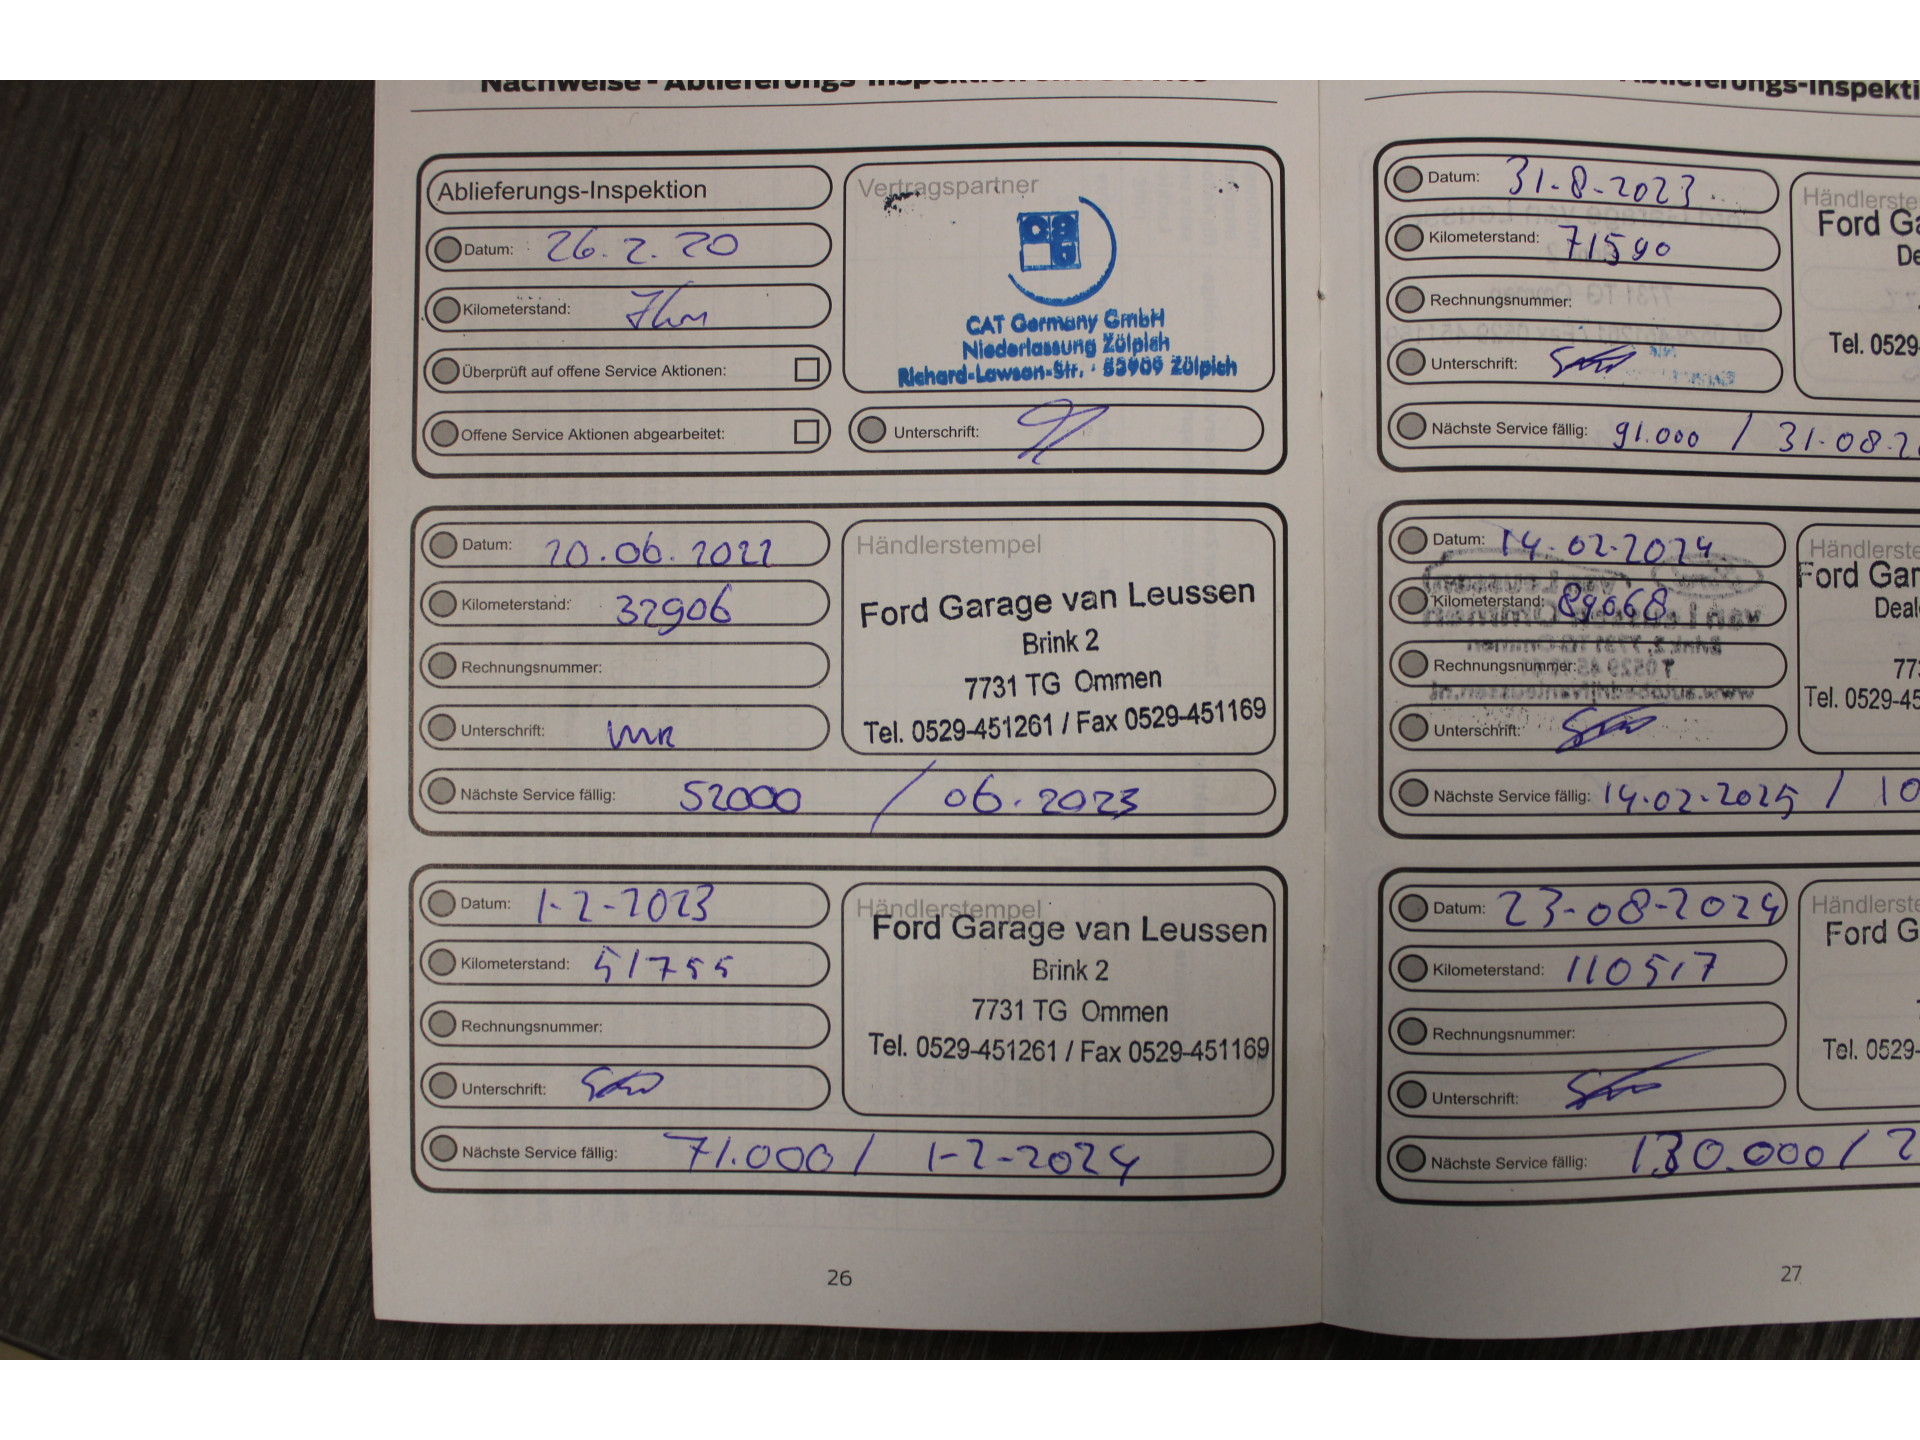 Nachweise - Ablieferungs-Inspektion und Service
Ablieferungs-Inspektion
Datum: 26.2.20
Kilometerstand: 7km
Überprüft auf offene Service Aktionen:
Offene Service Aktionen abgearbeitet:
Vertragspartner
CAT Germany GmbH
Niederlassung Zülpich
Richard-Lawson-Str. · 53909 Zülpich
Unterschrift:
Datum: 20.06.2022
Kilometerstand: 32906
Rechnungsnummer:
Unterschrift:
Händlerstempel
Ford Garage van Leussen
Brink 2
7731 TG Ommen
Tel. 0529-451261 / Fax 0529-451169
Nächste Service fällig: 52000 / 06.2023
Datum: 1-2-2023
Kilometerstand: 51755
Rechnungsnummer:
Unterschrift:
Händlerstempel
Ford Garage van Leussen
Brink 2
7731 TG Ommen
Tel. 0529-451261 / Fax 0529-451169
Nächste Service fällig: 71.000 / 1-2-2024
26
Ablieferungs-Inspekti
Datum: 31-8-2023
Kilometerstand: 71590
Rechnungsnummer:
Unterschrift:
Händlerste
Ford Ga
De
Tel. 0529-
Nächste Service fällig: 91.000 / 31-08-2
Datum: 14-02-2024
Kilometerstand: 89068
Rechnungsnummer:
Unterschrift:
Händlerste
Ford Gar
Deale
773
Tel. 0529-45
Nächste Service fällig: 14-02-2025 / 10
Datum: 23-08-2024
Kilometerstand: 110517
Rechnungsnummer:
Unterschrift:
Händlerste
Ford G
Tel. 0529-
Nächste Service fällig: 130.000 / 2
27